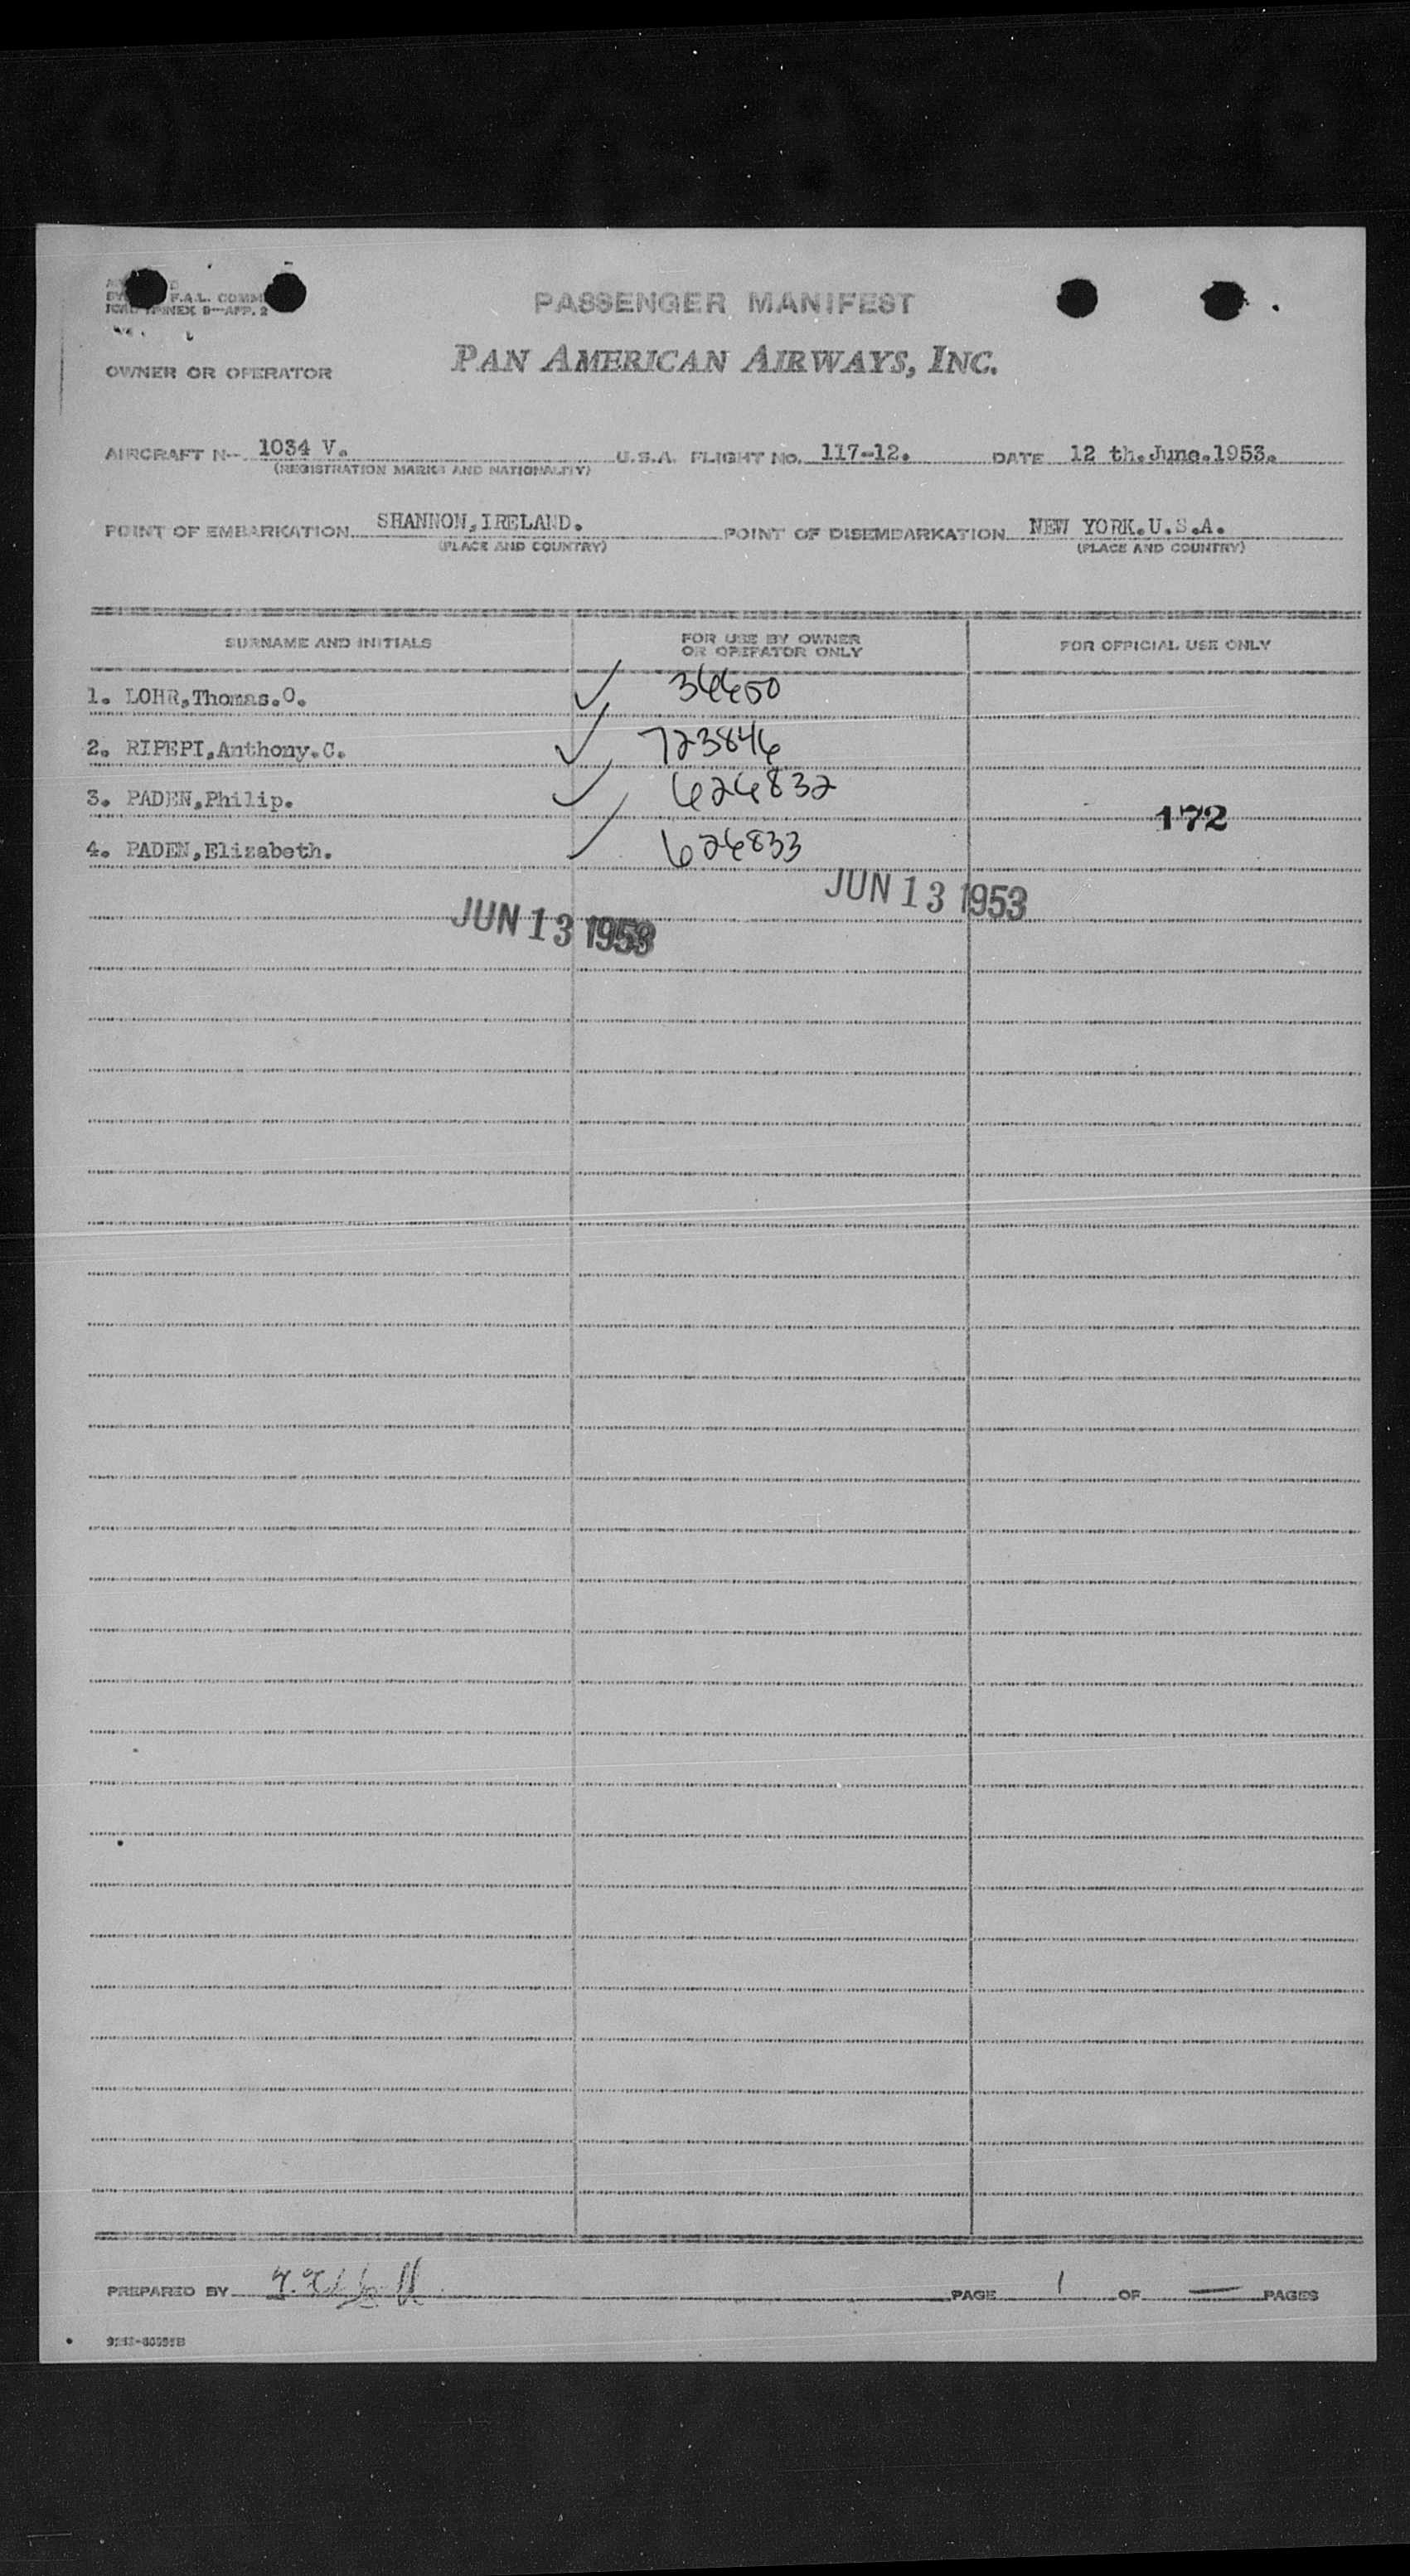 PASSENGER MANIFEST
F.A.L. COMM
ANNEX 9—APP. 2
PAN AMERICAN AIRWAYS, INC.
OWNER OR OPERATOR
AIRCRAFT N-- 1034 V. U.S.A. FLIGHT NO. 117-12. DATE 12 th.June.1953.
(REGISTRATION MARKS AND NATIONALITY)
POINT OF EMBARKATION SHANNON,IRELAND. POINT OF DISEMBARKATION NEW YORK.U.S.A.
(PLACE AND COUNTRY) (PLACE AND COUNTRY)
SURNAME AND INITIALS FOR USE BY OWNER OR OPERATOR ONLY FOR OFFICIAL USE ONLY
1. LOHR,Thomas.O. ✓
2. RIPEPI,Anthony.C. ✓ 723846
3. PADEN,Philip. ✓ 626832
172
4. PADEN,Elizabeth. ✓ 626833
JUN 13 1953
JUN 13 1953
PREPARED BY PAGE 1 OF — PAGES